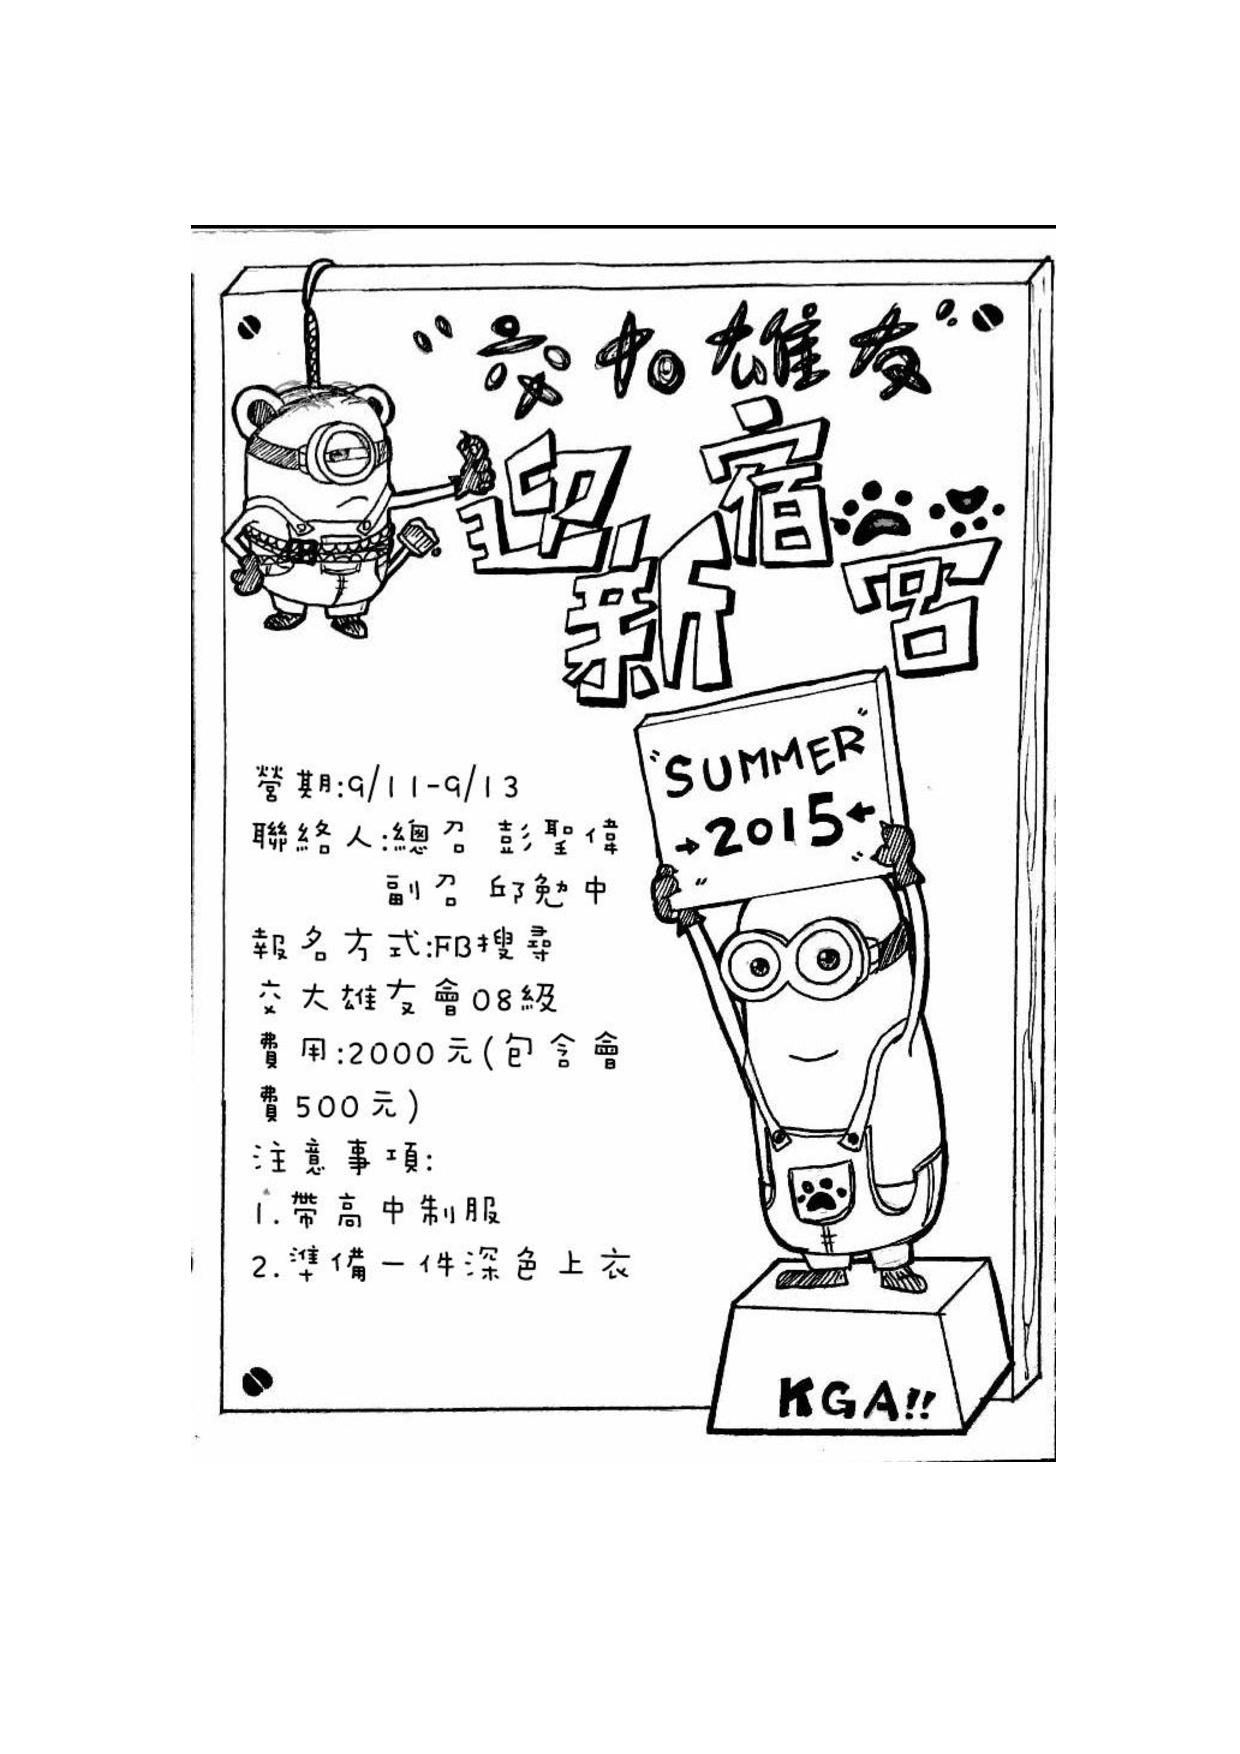 "交大雄友"
迎新宿營
"SUMMER"
→2015←
營期:9/11-9/13
聯絡人:總召 彭聖偉
副召 邱勉中
報名方式:FB搜尋
交大雄友會08級
費用:2000元(包含會
費500元)
注意事項:
1.帶高中制服
2.準備一件深色上衣
KGA!!